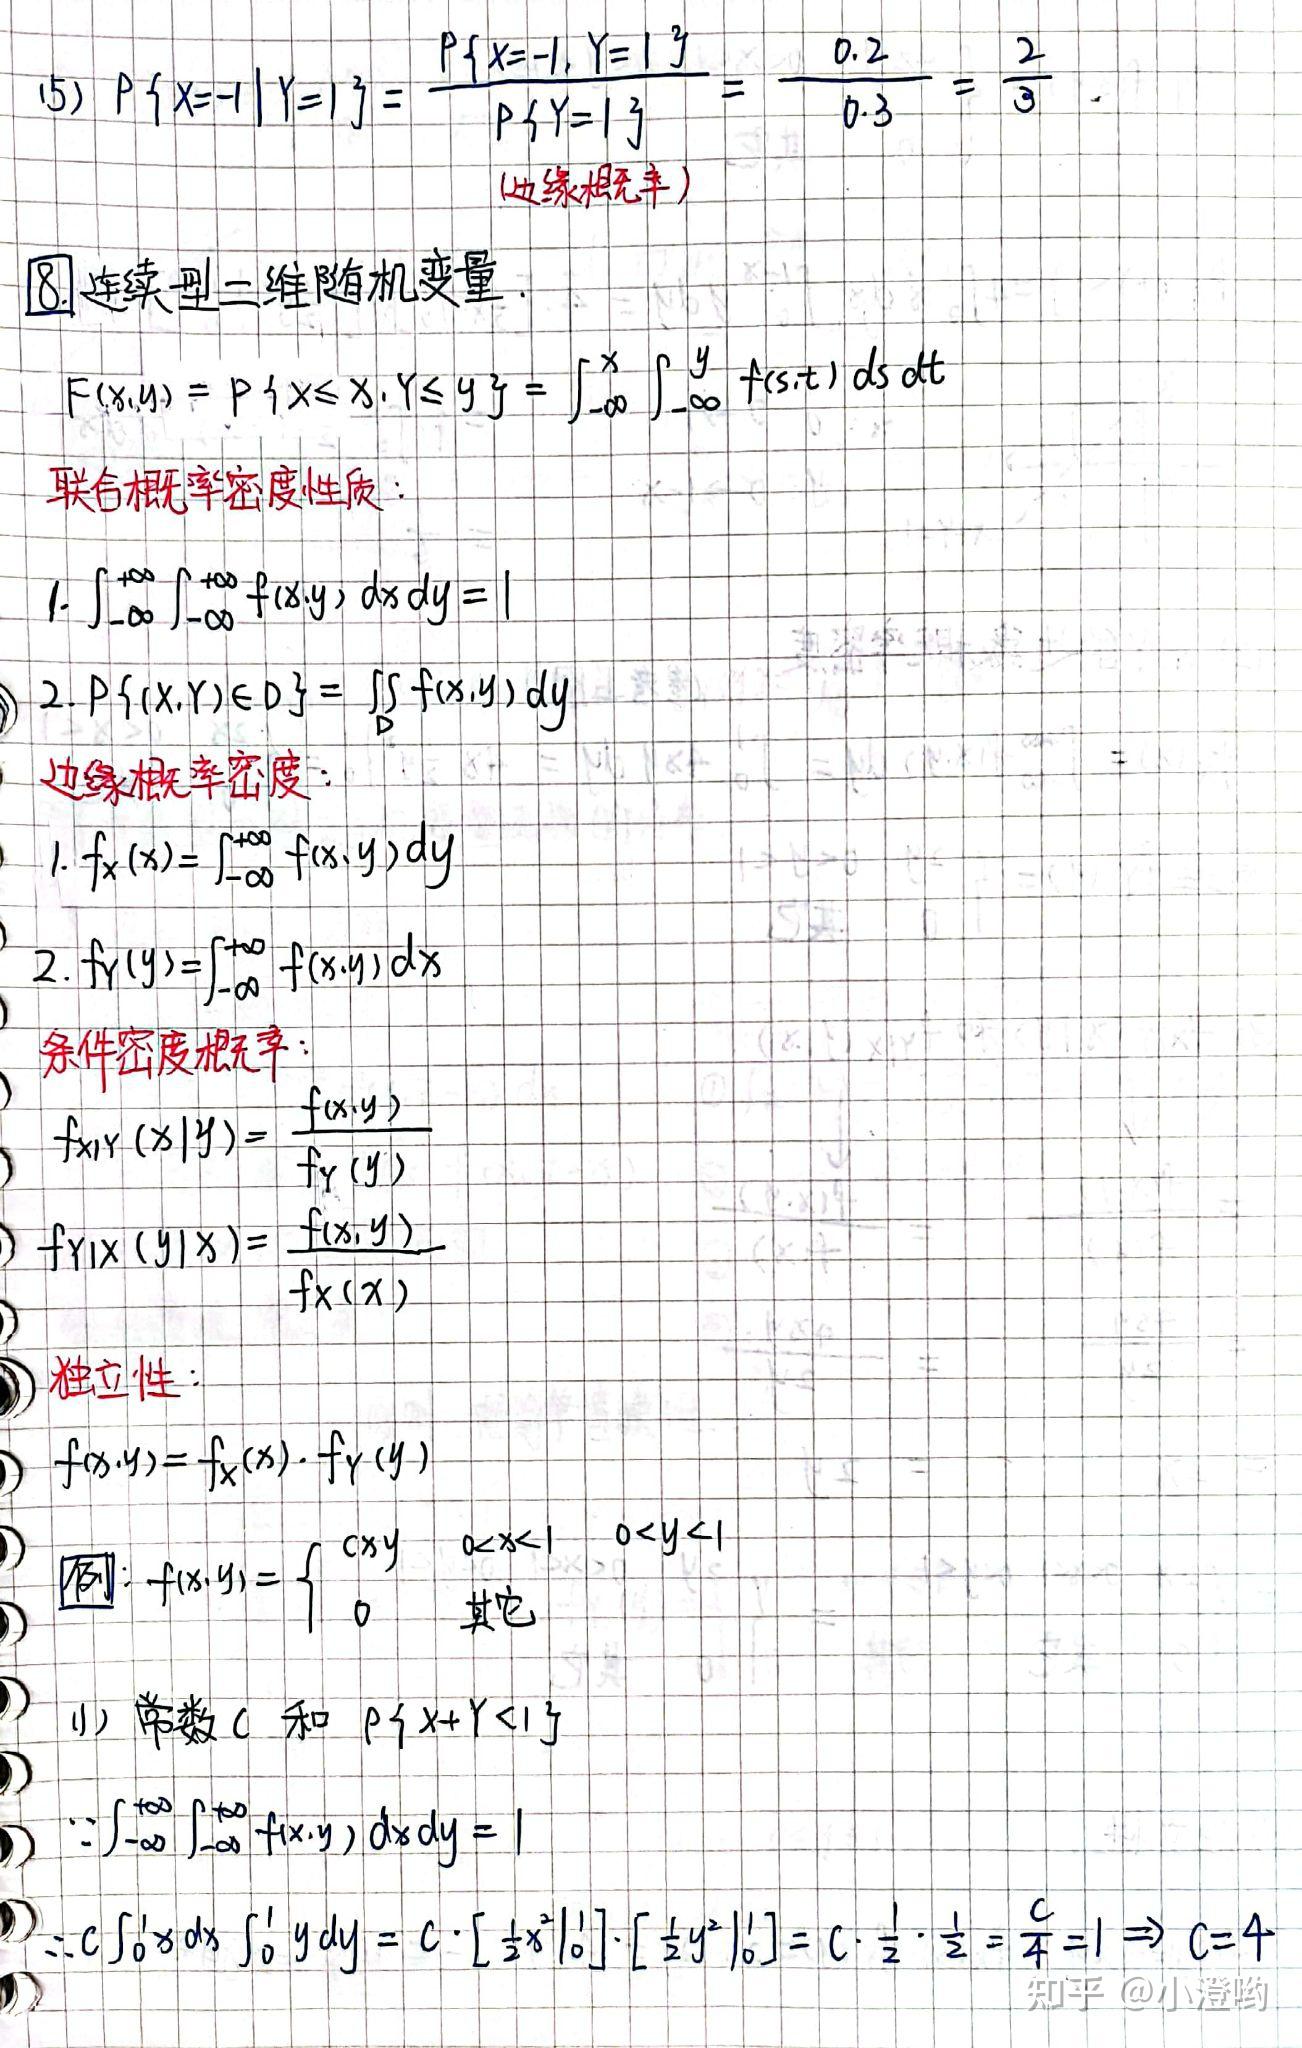 (5) P{X=-1|Y=1} = P{X=-1, Y=1} / P{Y=1} = 0.2/0.3 = 2/3 .
(边缘概率)
8. 连续型二维随机变量.
F(x,y) = P{X≤x, Y≤y} = ∫_{-∞}^{x} ∫_{-∞}^{y} f(s,t) ds dt
联合概率密度性质:
1. ∫_{-∞}^{+∞} ∫_{-∞}^{+∞} f(x,y) dx dy = 1
2. P{(X,Y)∈D} = ∬_D f(x,y) dy
边缘概率密度:
1. f_X(x) = ∫_{-∞}^{+∞} f(x,y) dy
2. f_Y(y) = ∫_{-∞}^{+∞} f(x,y) dx
条件密度概率:
f_{X|Y}(x|y) = f(x,y) / f_Y(y)
f_{Y|X}(y|x) = f(x,y) / f_X(x)
独立性:
f(x,y) = f_X(x) · f_Y(y)
例: f(x,y) = { cxy 0<x<1 0<y<1
0 其它
(1) 常数C 和 P{X+Y<1}
∵ ∫_{-∞}^{+∞} ∫_{-∞}^{+∞} f(x,y) dx dy = 1
∴ C ∫_0^1 x dx ∫_0^1 y dy = C · [1/2 x²|_0^1] · [1/2 y²|_0^1] = C · 1/2 · 1/2 = C/4 = 1 ⇒ C=4
知乎 @小澄哟